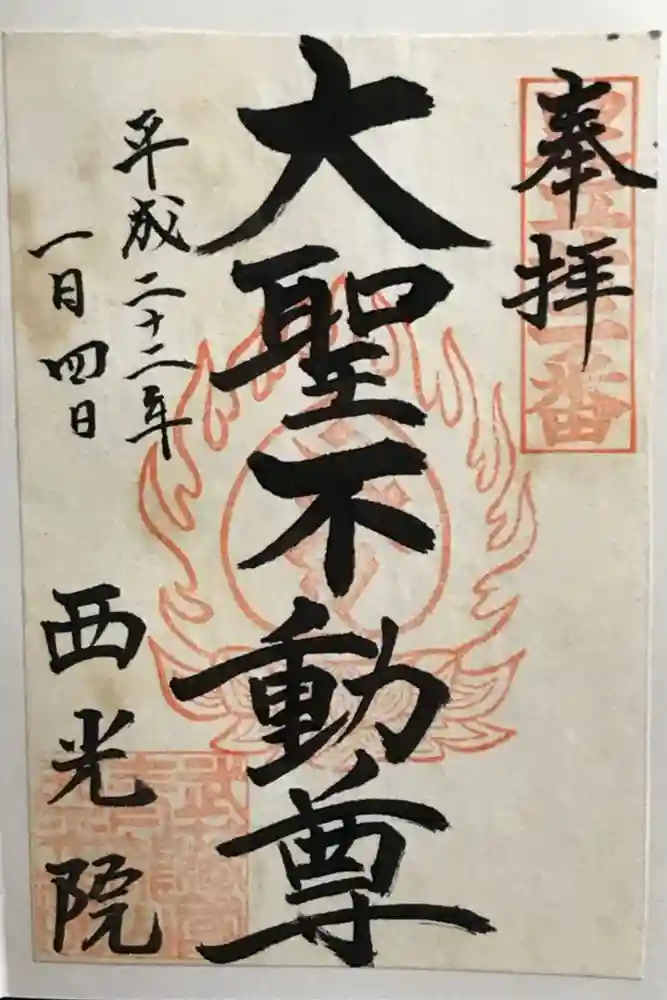 奉拝
大聖不動尊
平成二十二年
一日四日
西光院